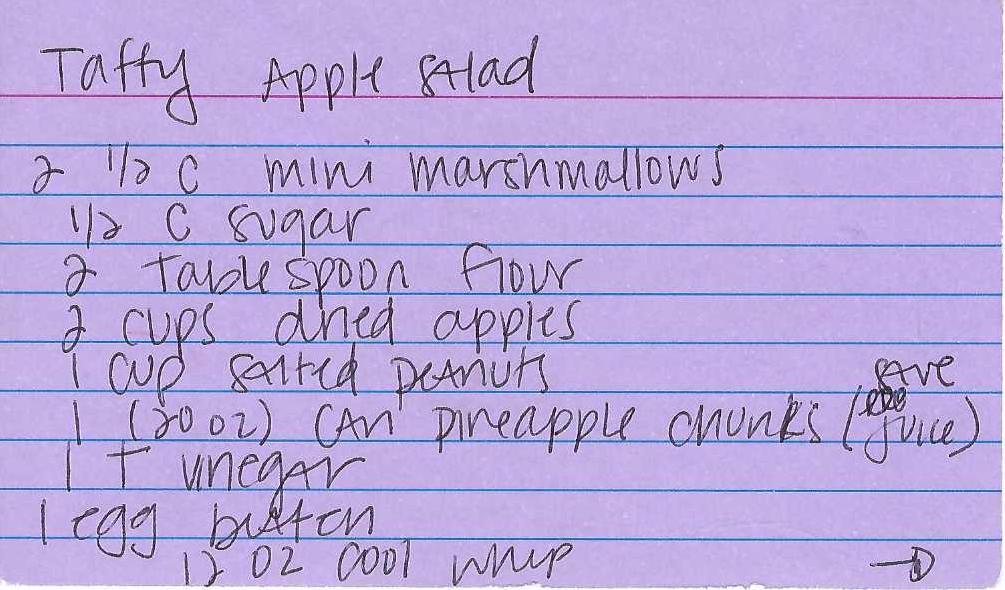 Taffy Apple Salad
2 1/2 C mini marshmallows
1/2 C sugar
2 Tablespoon flour
2 cups dried apples
1 cup salted peanuts
1 (20 oz) can pineapple chunks (save juice)
1 T vinegar
1 egg beaten
12 oz cool whip →